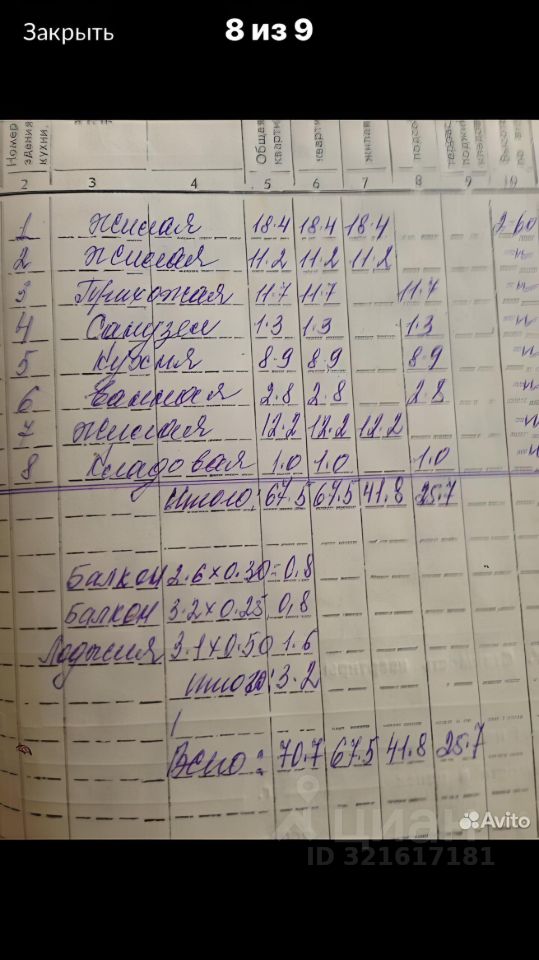 Закрыть 8 из 9
Номер здания кухни.
Общая кварти
кварти
жилая
подсо
2 3 4 5 6 7 8 9 10
1 Жилая 18.4 18.4 18.4 2-60
2 Жилая 11.2 11.2 11.2 -"-
3 Прихожая 11.7 11.7 11.7 -"-
4 Санузел 1.3 1.3 1.3 -"-
5 Кухня 8.9 8.9 8.9 -"-
6 Ванная 2.8 2.8 2.8 -"-
7 Жилая 12.2 12.2 12.2 -"-
8 Кладовая 1.0 1.0 1.0 -"-
Итого: 67.5 67.5 41.8 25.7
Балкон 2.6×0.30=0,8
Балкон 3.2×0.25 0,8
Лоджия 3.1×0.50 1.6
Итого: 3.2
Всего: 70.7 67.5 41.8 25.7
циан
Avito
ID 321617181